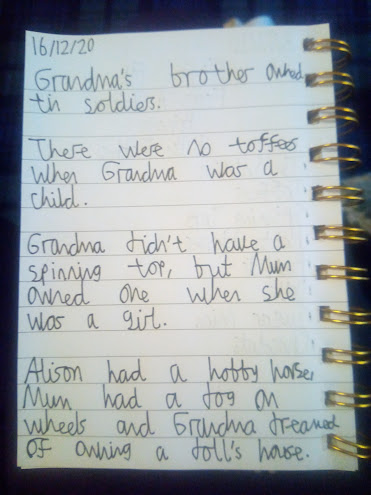 16/12/20
Grandma's brother owned
tin soldiers.
There were no toffees
when Grandma was a
child.
Grandma didn't have a
spinning top, but Mum
owned one when she
was a girl.
Alison had a hobby horse,
Mum had a dog on
wheels and Grandma dreamed
of owning a doll's house.